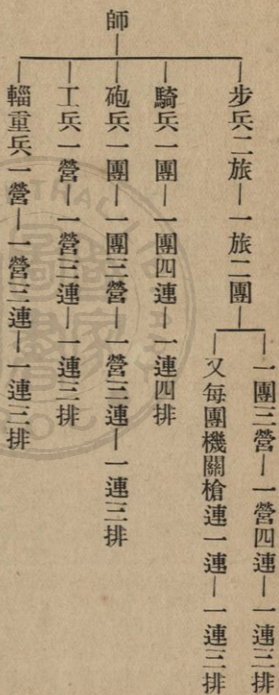 師
步兵二旅｜一旅二團
一團三營｜一營四連｜一連三排
又每團機關槍連一連｜一連三排
騎兵一團｜一團四連｜一連四排
砲兵一團｜一團三營｜一營三連｜一連三排
工兵一營｜一營三連｜一連三排
輜重兵一營｜一營三連｜一連三排